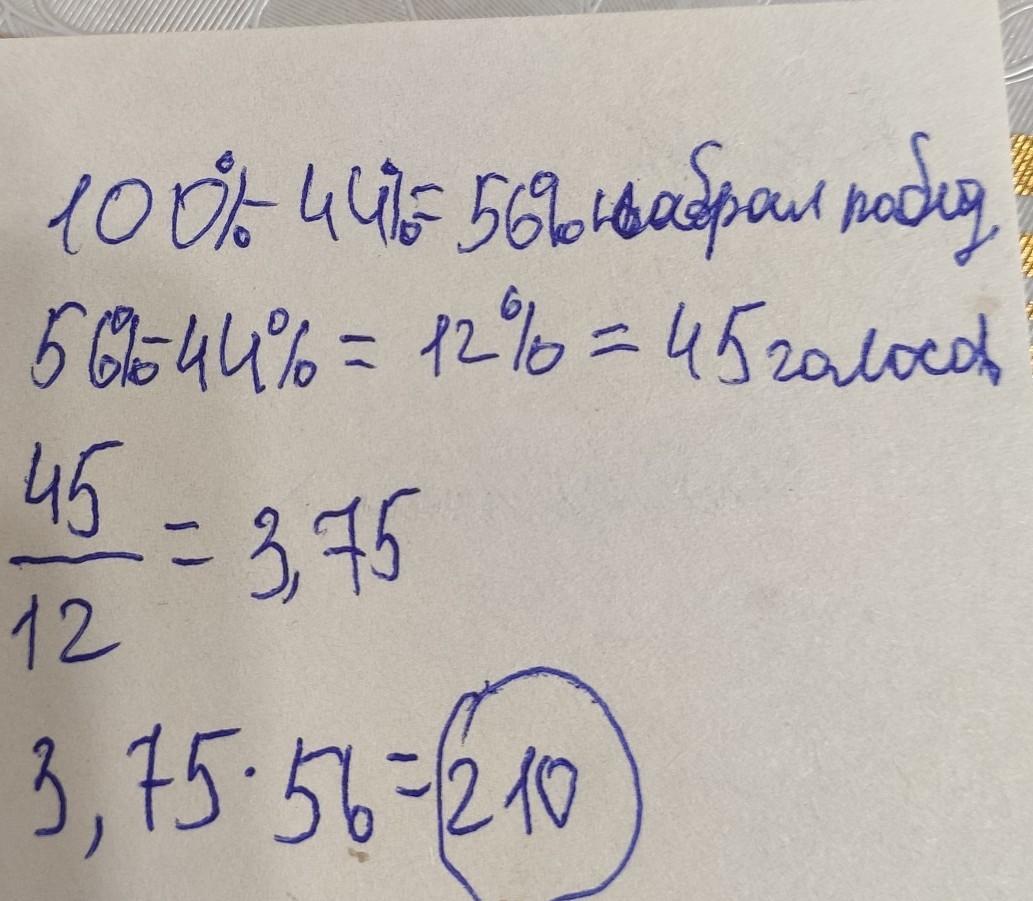 100%-44%=56% набрал побед.
56%-44%=12%=45 голосов
45
12
= 3,75
3,75·56=210